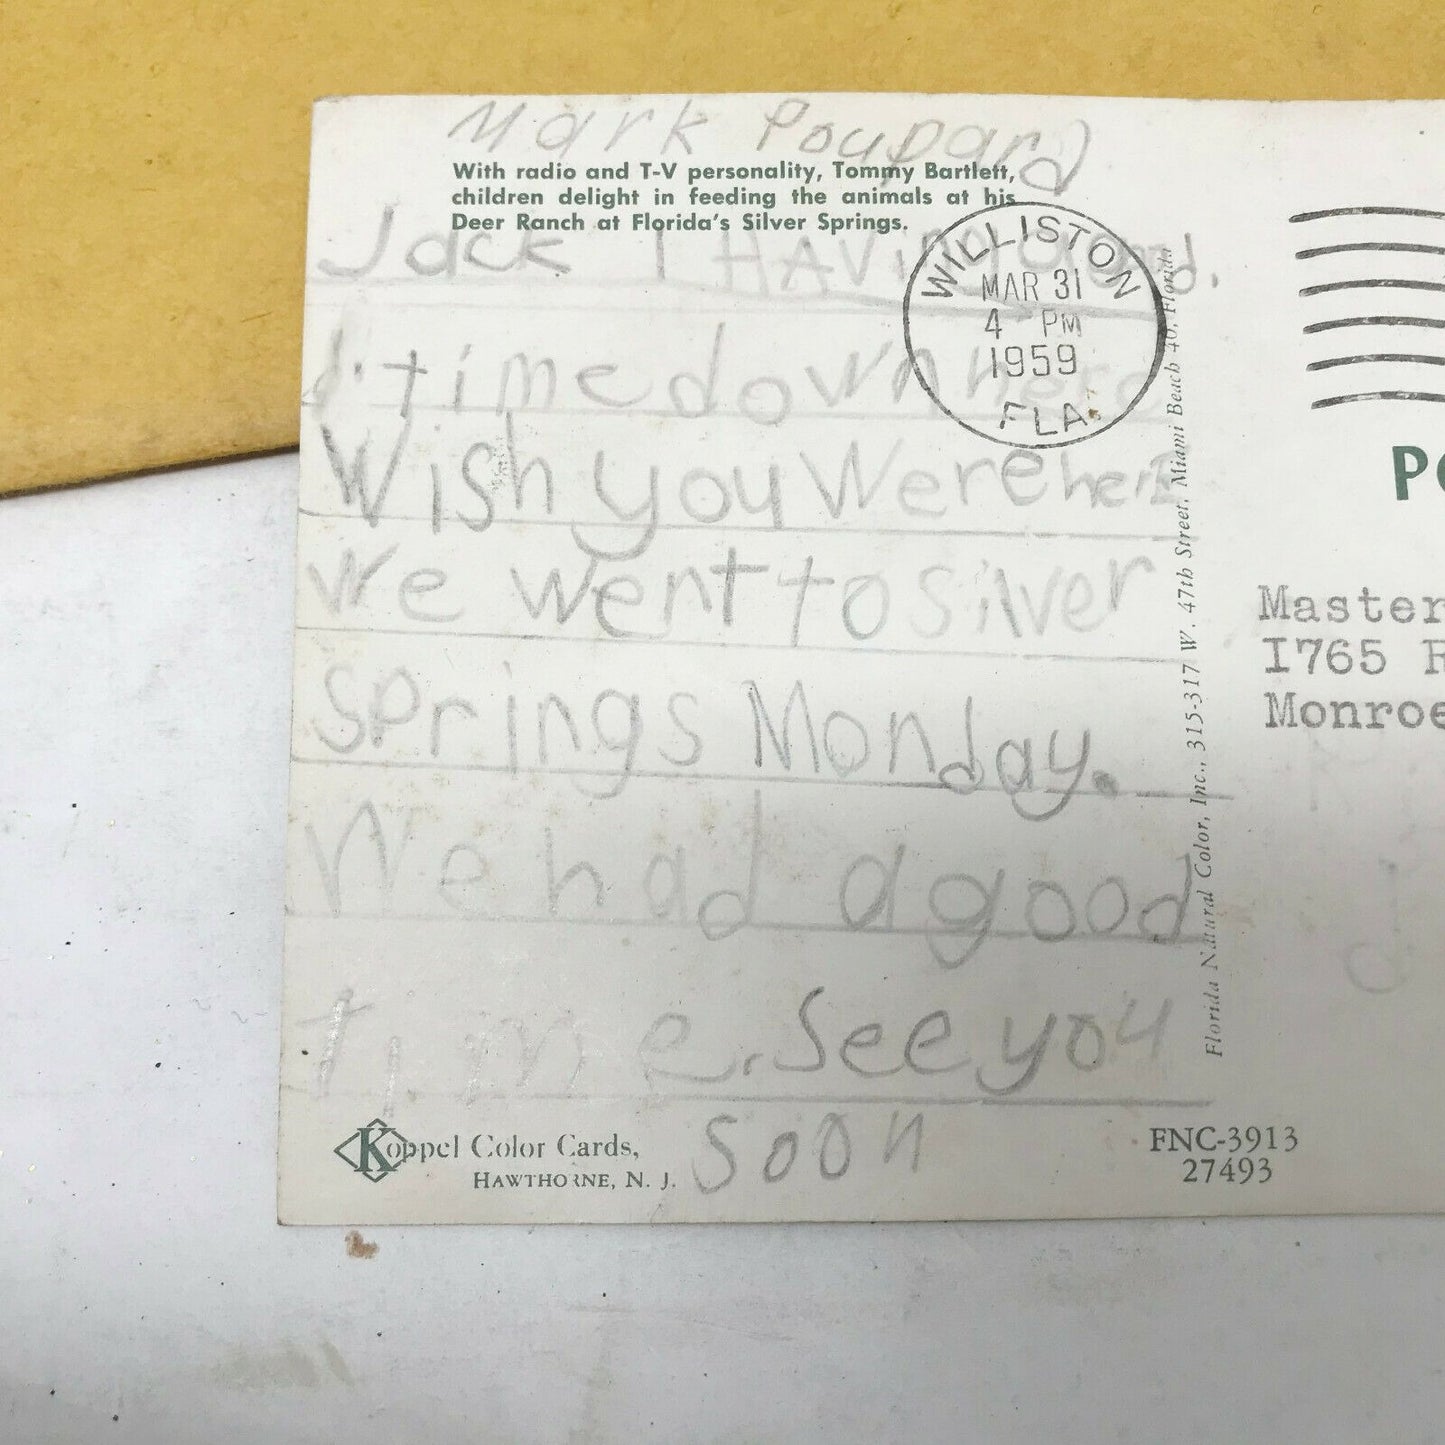 Mark Poupard
With radio and T-V personality, Tommy Bartlett,
children delight in feeding the animals at his
Deer Ranch at Florida's Silver Springs.
Jack I HAVing
time down here
Wish you were here
We went to Silver
Springs Monday.
We had a good
time. See you
soon
WILLISTON
MAR 31
4 PM
1959
FLA.
Florida Natural Color, Inc., 315-317 W. 47th Street, Miami Beach 40, Florida
Koppel Color Cards,
HAWTHORNE, N. J.
FNC-3913
27493
PO
Master
1765
Monroe